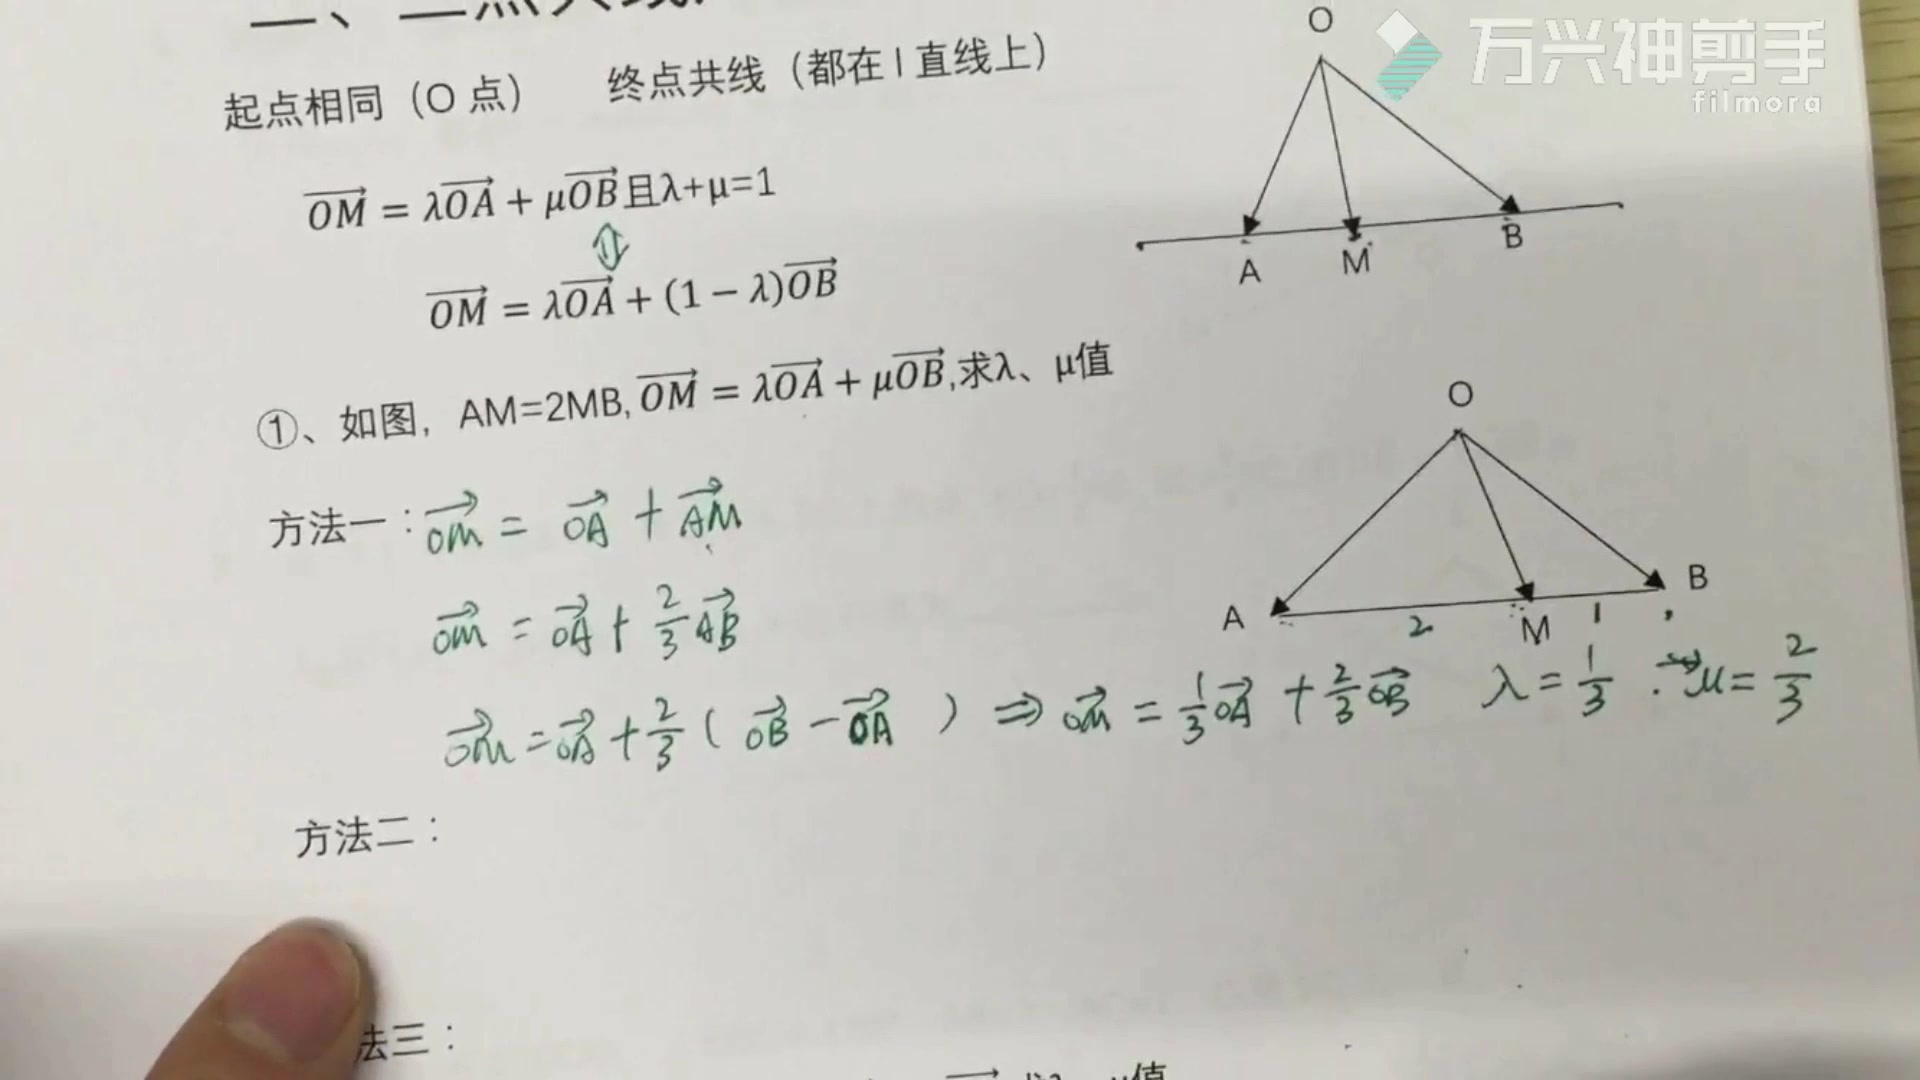 起点相同（O 点） 终点共线（都在 l 直线上）
O
万兴神剪手
filmora
$\overrightarrow{OM} = λ\overrightarrow{OA} + μ\overrightarrow{OB}$且λ+μ=1
⇕
A M B
$\overrightarrow{OM} = λ\overrightarrow{OA} + (1 − λ)\overrightarrow{OB}$
①、如图，AM=2MB, $\overrightarrow{OM} = λ\overrightarrow{OA} + μ\overrightarrow{OB}$,求λ、μ值
O
方法一：$\overrightarrow{OM} = \overrightarrow{OA} + \overrightarrow{AM}$
A 2 M 1 B
$\overrightarrow{OM} = \overrightarrow{OA} + \frac{2}{3}\overrightarrow{AB}$
$\overrightarrow{OM} = \overrightarrow{OA} + \frac{2}{3}(\overrightarrow{OB} − \overrightarrow{OA}) ⇒ \overrightarrow{OM} = \frac{1}{3}\overrightarrow{OA} + \frac{2}{3}\overrightarrow{OB}$ $λ = \frac{1}{3}$ . $μ = \frac{2}{3}$
方法二：
法三：